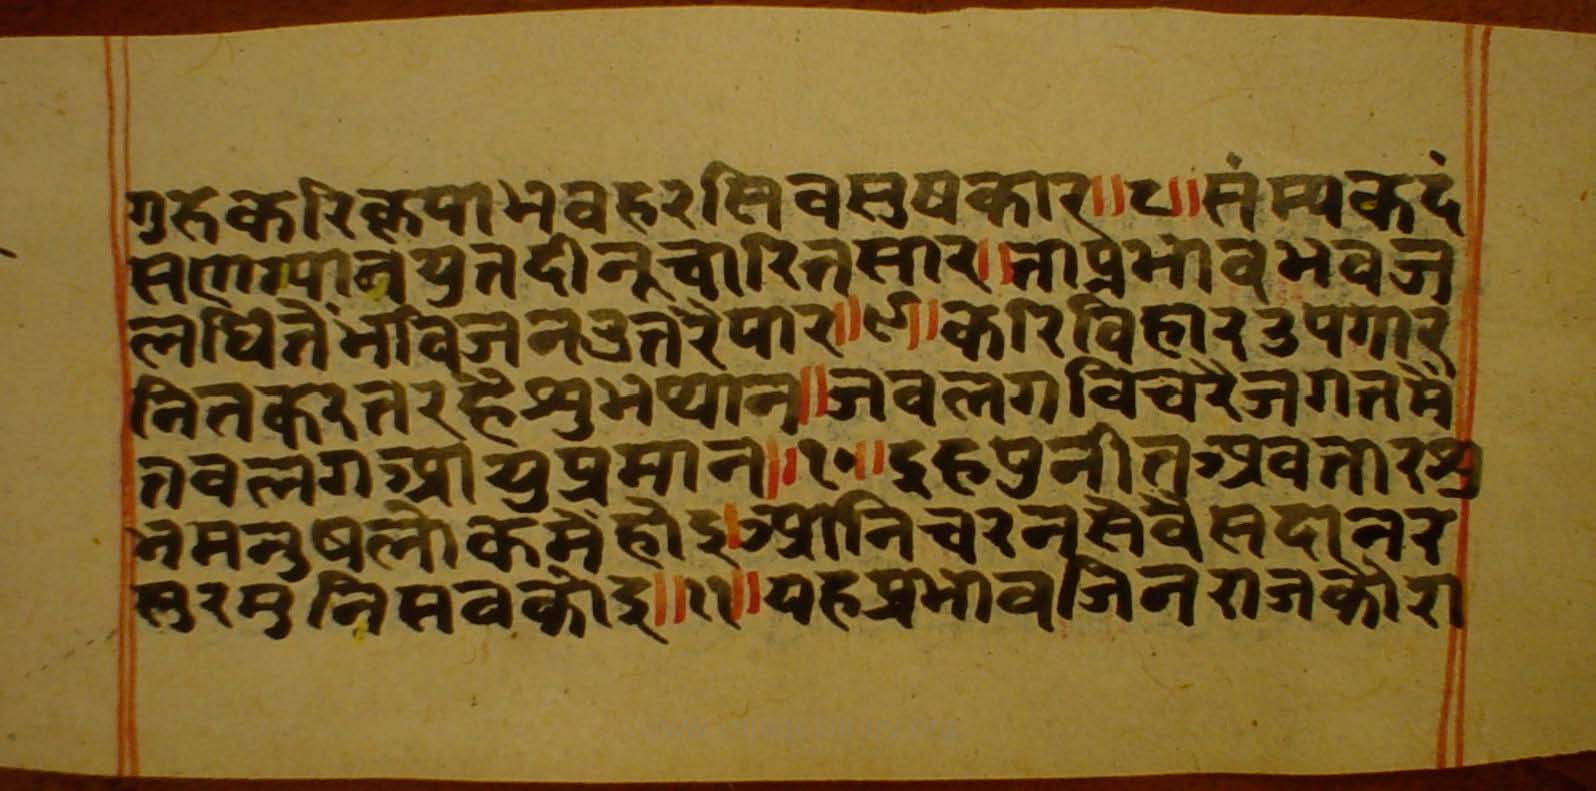 गुहकरिकृपाभवहरसिवसुषकार॥८॥संम्यकदं
सणग्यानयुतदीनूचारितसार।ताप्रभावभवज
लधितैंभविजनउतरैपार॥९॥करिविहारउपगार
नितकरतरहैशुभध्यान॥जवलगविचरैजगतमैं
तवलगआयुप्रमान॥१०॥इहपुनीतअवतारशु
नमनुषलोकमैंहोइ।आनिचरनसेवैसदानर
सुरमुनिसवकोइ॥११॥यहप्रभावजिनराजकोरा